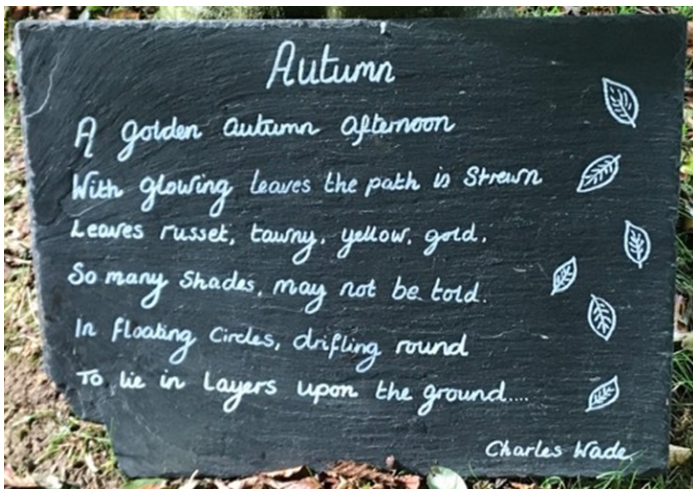 Autumn
A golden autumn afternoon
With glowing leaves the path is strewn
Leaves russet, tawny, yellow, gold,
So many shades, may not be told.
In floating circles, drifting round
To lie in layers upon the ground....
Charles Wade